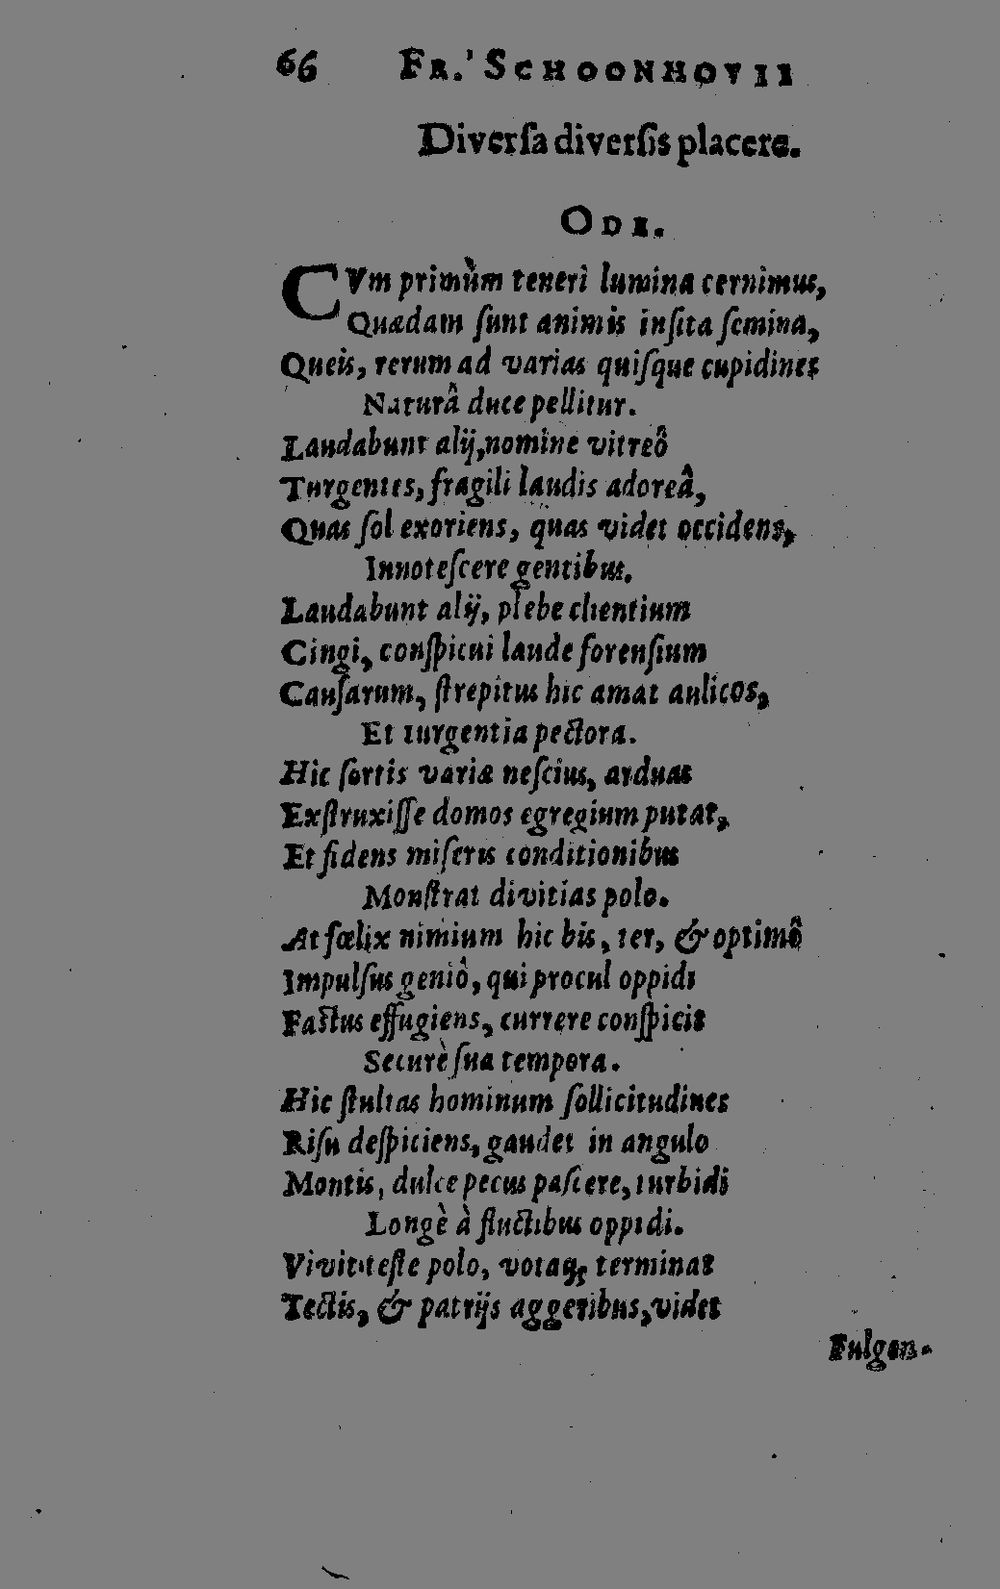 66 FR. SCHOONHOVII
Diverſa diverſis placere.
ODE.
CVm primùm teneri lumina cernimus,
Quædam ſunt animis inſita ſemina,
Queis, rerum ad varias quiſque cupidines
Naturâ duce pellitur.
Laudabunt alij, nomine vitreô
Turgentes, fragili laudis adoreâ,
Quas ſol exoriens, quas videt occidens,
Innoteſcere gentibus.
Laudabunt alij, plebe clientium
Cingi, conſpicui laude forenſium
Cauſarum, ſtrepitus hic amat aulicos,
Et turgentia pectora.
Hic ſortis variæ neſcius, arduas
Exſtruxiſſe domos egregium putat,
Et fidens miſeris conditionibus
Monſtrat divitias polo.
At fœlix nimium hic bis, ter, & optimô
Impulſus geniô, qui procul oppidi
Faſtus effugiens, currere conſpicit
Securè ſua tempora.
Hic ſtultas hominum ſollicitudines
Riſu deſpiciens, gaudet in angulo
Montis, dulce pecus paſcere, turbidi
Longè à fluctibus oppidi.
Vivit teſte polo, votaq; terminat
Tectis, & patrijs aggeribus, videt
Fulgen-